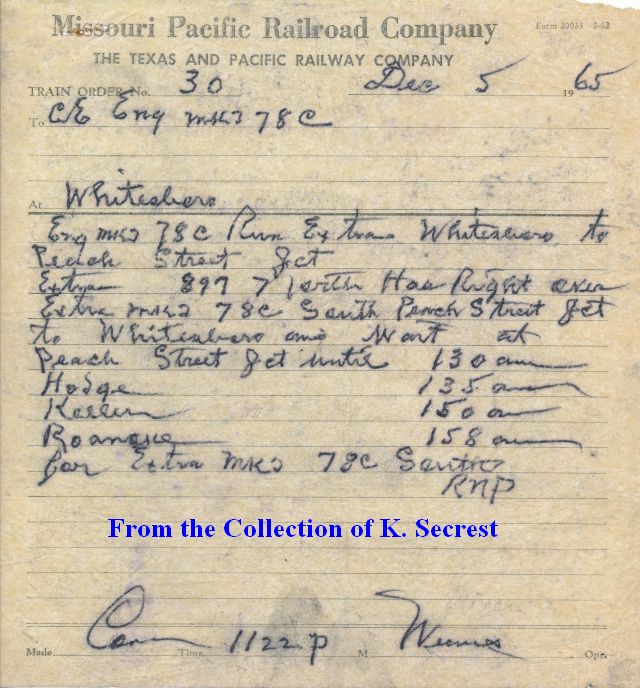 Missouri Pacific Railroad Company
Form 20035 3-63
THE TEXAS AND PACIFIC RAILWAY COMPANY
TRAIN ORDER No. 30 Dec 5 1965
To C&E Eng MKT 78C
At Whitesboro
Eng MKT 78C Run Extra Whitesboro to
Peach Street Jct
Extra 897 North Has Right over
Extra MKT 78C South Peach Street Jct
to Whitesboro and Wait at
Peach Street Jct until 130 am
Hodge 135 am
Keller 150 am
Roanoke 158 am
for Extra MKT 78C South
RNP
From the Collection of K. Secrest
Made Com Time 1122 P M Opr.